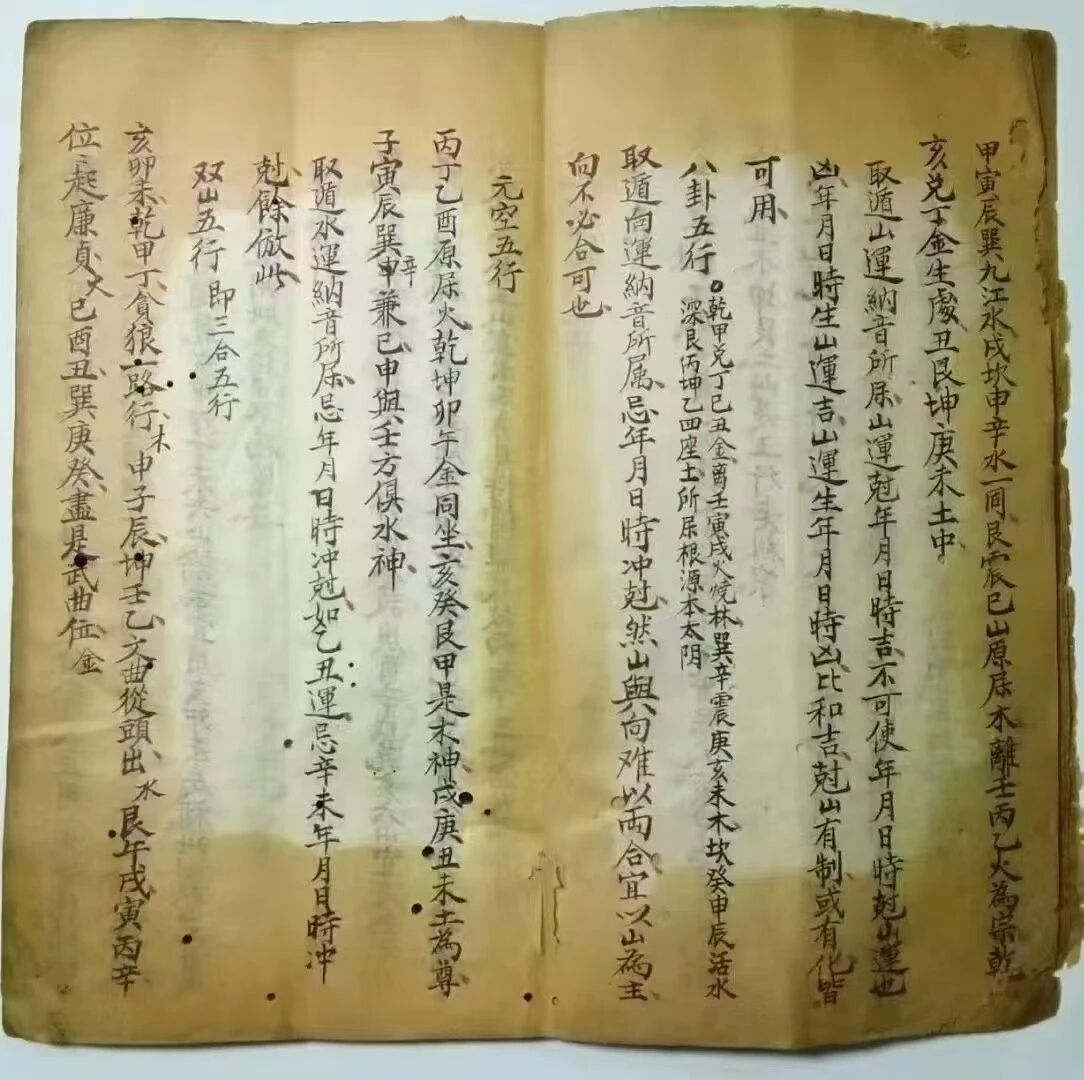 甲寅辰巽九江水戌坎申辛水一同艮震巳山原屈木離壬丙乙火為宗乾
亥兑丁金生處丑艮坤庚未土中
取遁山運納音所屈山運尅年月日時吉不可使年月日時尅山運也
凶年月日時生山運吉山運生年月日時凶比和吉尅山有制或有化皆
可用
八卦五行。乾甲兑丁巳丑金离壬寅戌火燒林巽辛震庚亥未木坎癸申辰活水
深艮丙坤乙四座土所屈根源本太阴
取遁向運納音所属忌年月日時冲尅然山與向难以両合宜以山為主
向不必合可也
元空五行
丙丁乙酉原屈火乾坤卯午金同坐亥癸艮甲是木神戌庚丑未土為尊
子寅辰巽申辛兼巳申與壬方俱水神
取遁水運納音所屈忌年月日時冲尅如乙丑運忌辛未年月日時冲
尅餘倣此
双山五行即三合五行
亥卯未乾甲丁貪狼一路行木申子辰坤壬乙文曲從頭出水艮午戌寅丙辛
位起廉貞火巳酉丑巽庚癸盡是武曲位金